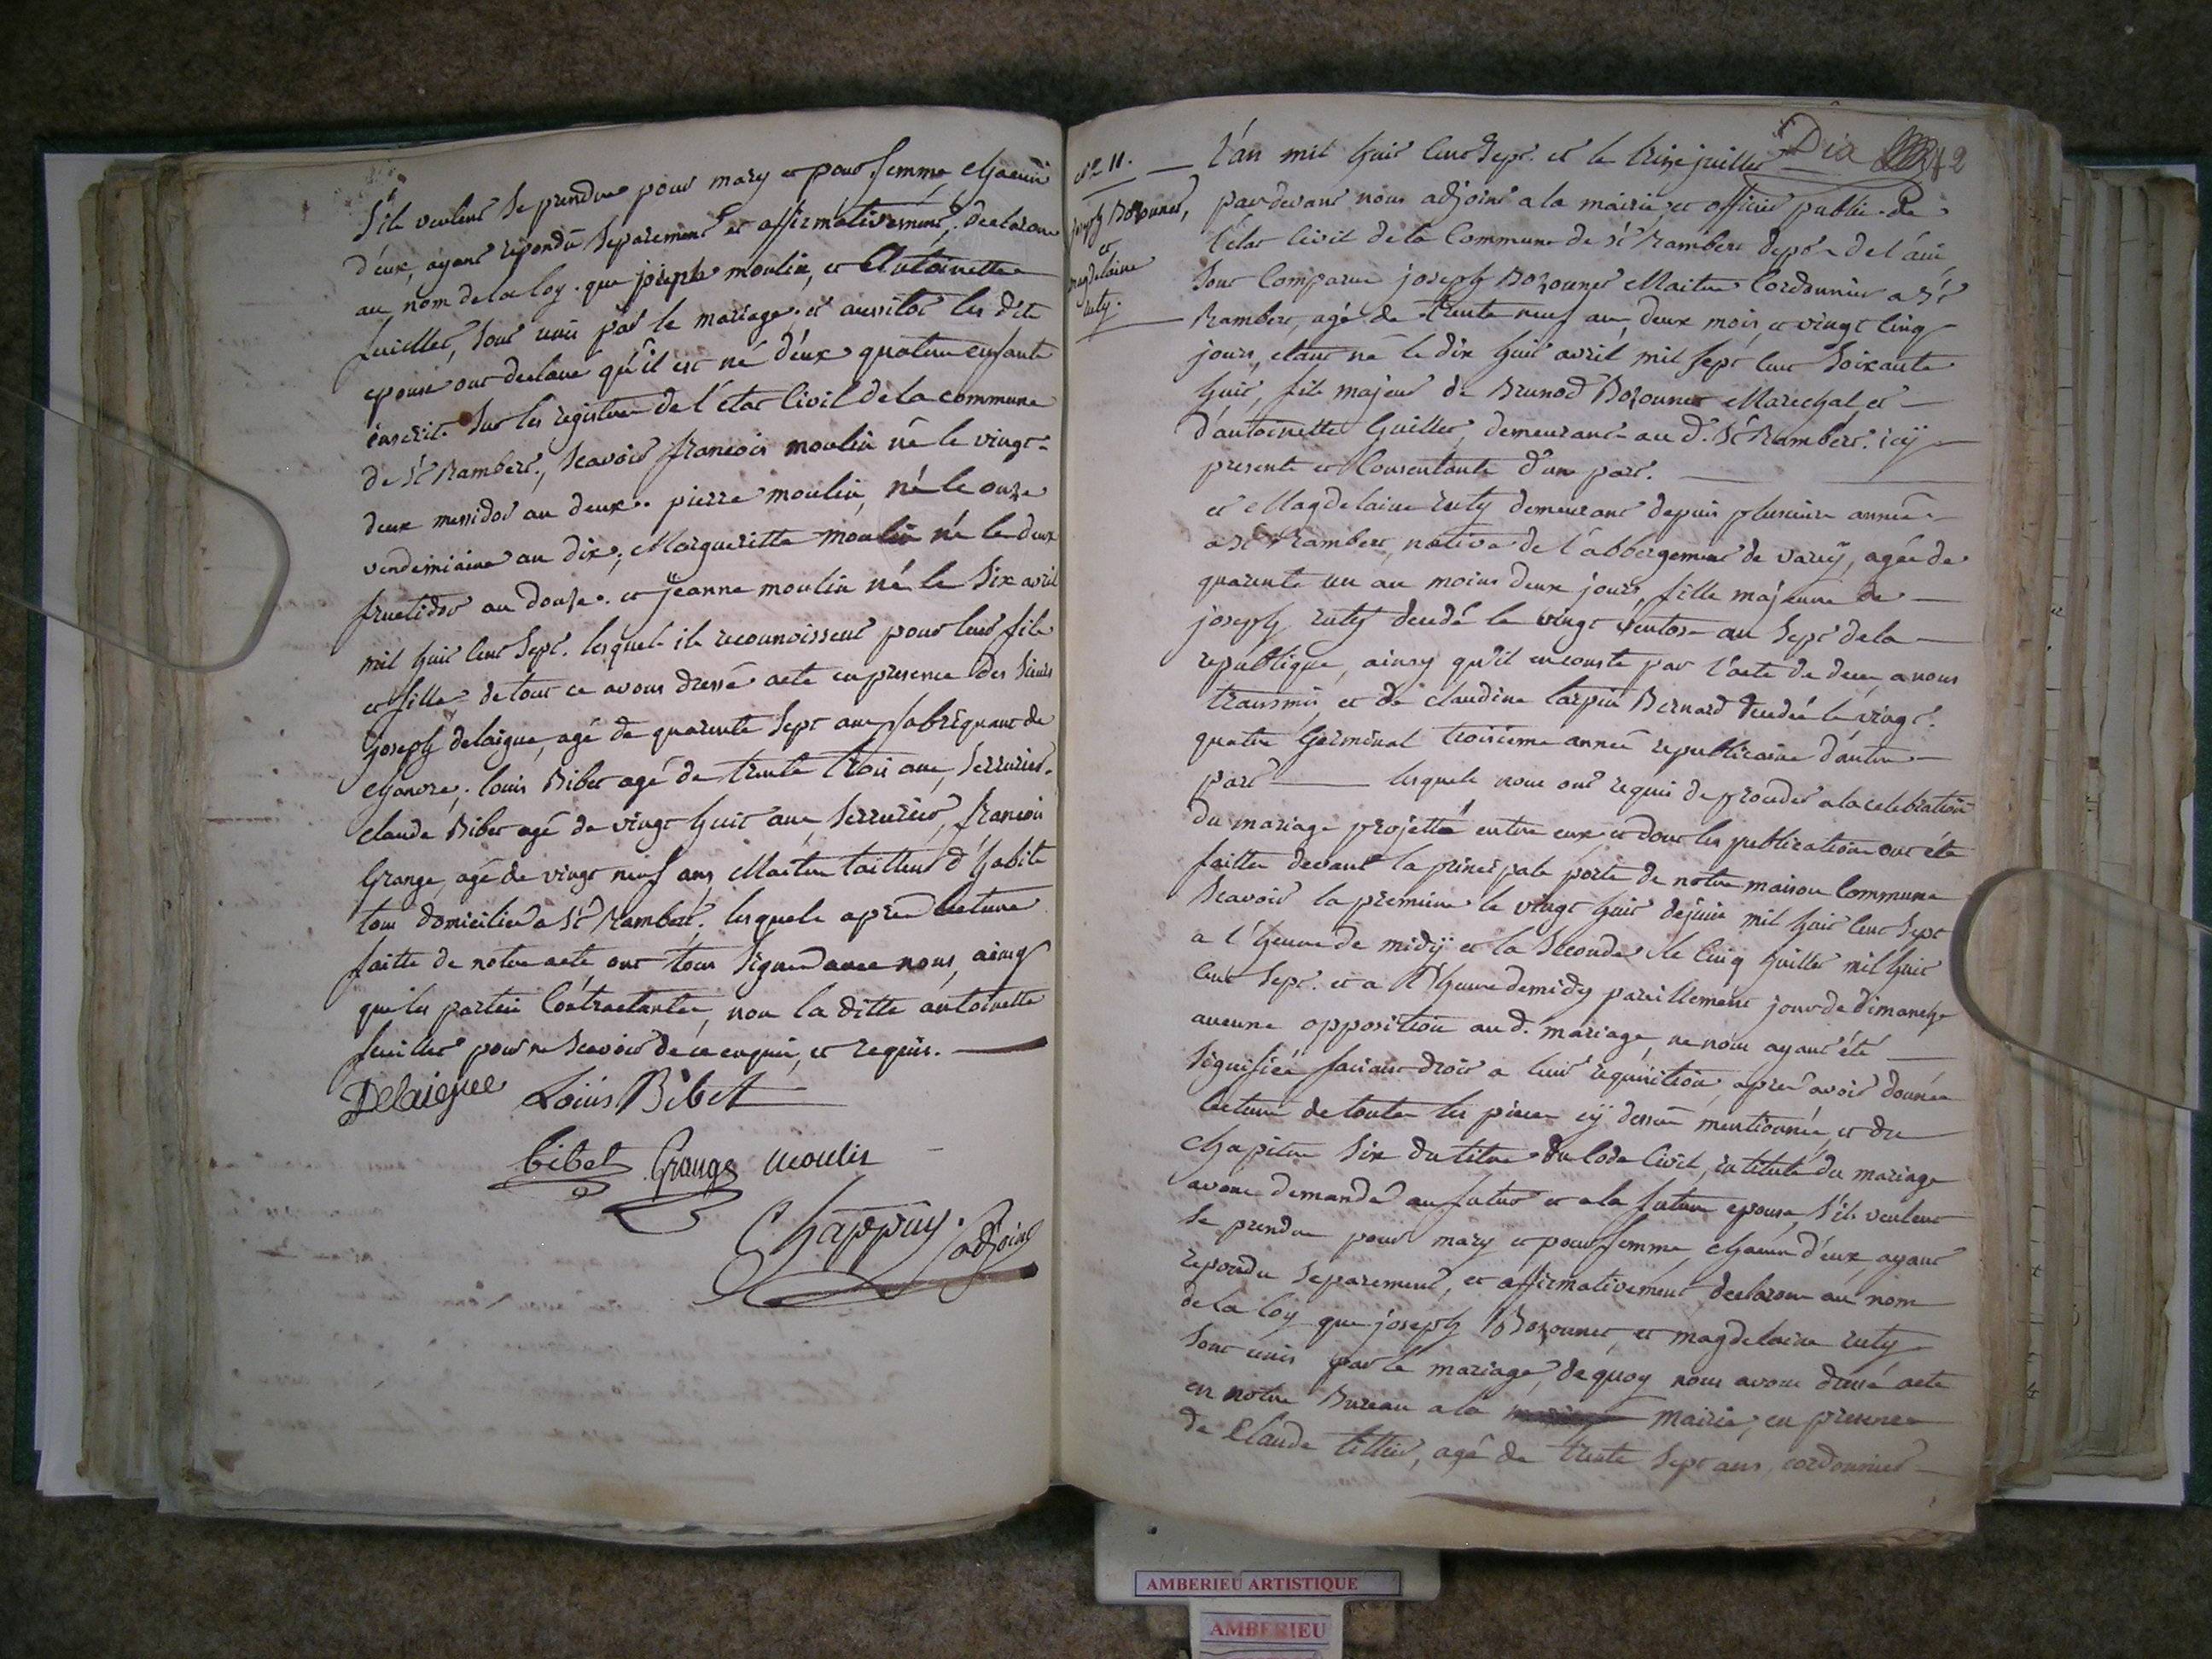 s'ils veulent se prendre pour mary et pour femme, chacun
d'eux, ayant repondû separement et affirmativement, declarons
au nom de la loy. que joseph moulin, et Antoinette
fuillet, sont unis par le mariage. et aussitot les dits
epoux ont declaré qu'il est né d'eux quatre enfants
enscrits sur les registres de l'état Civil de la commune
de St Rambert, scavoir francois moulin né le vingt-
deux messidor an deux. pierre moulin, né le onze
vendemiaire an dix, Margueritte moulin né le deux
fructidor an douze. et jeanne moulin né le six avril
mil huit cent sept. lesquels ils reconnoissent pour leurs fils
et filles de tout ce avons dressé acte en presence des sieurs
joseph delaigue, agé de quarente sept ans fabriquant de
chanvre, louis Bibet agé de trente trois ans, serrurier.
claude Bibet agé de vingt huit ans, serrurier, francois
Grange, agé de vingt neuf ans Maitre tailleur d'habits
tous domiciliés a St Rambert, lesquels apres lecture
faitte de notre acte ont tous signes avec nous, ainsy
que les parties Contractantes, non la ditte antoinette
fuillet pour ne scavoir de ce enquis, et requis.
Delaigue Loüis Bibet
bibet Grange moulin
Chappuy. adjoint
Dix 42
No 11.
joseph Bozonnet,
et
magdelaine
ruty.
L'an mil huit Cent sept. et le treize juillet
pardevant nous adjoint a la mairie, et officier public de
l'état Civil de la Commune de St Rambert dept de l'ain
sont Comparus joseph Bozonnet Maitre Cordonnier a St
Rambert, agé de trente neuf ans, deux mois, et vingt cinq
jours, etant né le dix huit avril mil sept cent soixante
huit, fils majeur de Brunod Bozonnet Marechal, et
d'antoinette Guillet, demeurant au d. St Rambert. icÿ
presente et Consentante d'une part.
et Magdelaine ruty demeurant depuis plusieurs années
a St Rambert, native de l'abbergement de vareÿ, agée de
quarente un ans moins deux jours, fille majeure de
joseph ruty decedé le vingt ventose an sept de la
republique, ainsy qu'il en conste par l'acte de deces a nous
transmis, et de claudine Carpin Bernard decedée le vingt
quatre Germinal troisieme année republicaine d'autre
part lesquels nous ont requis de proceder a la celebration
du mariage projetté entre eux et dont les publications ont été
faittes devant la principale porte de notre maison Commune
scavoir la premiere le vingt huit de juin mil huit Cent Sept
a l'heure de midÿ et la seconde le cinq juillet mil huit
Cent Sept. et a l'heure de midy pareillement jour de dimanche
aucune opposition au d. mariage ne nous ayant été
signifiée faisant droit a leur requisition, apres avoir donnée
lecture de toutes les pieces cÿ dessus mentionnées, et du
chapitre six du titre du Code Civil, intitulé du mariage
avons demandé au futur et a la future epouse, s'ils veulent
se prendre pour mary et pour femme, chacun d'eux, ayant
repondu separement, et affirmativement declarons au nom
de la loy que joseph Bozonnet, et magdelaine ruty
sont unis par le mariage, de quoy nous avons dressé acte
en notre Bureau a la mairie, en presence
de Claude tillier, agé de trente sept ans, cordonnier
AMBERIEU ARTISTIQUE
AMBERIEU